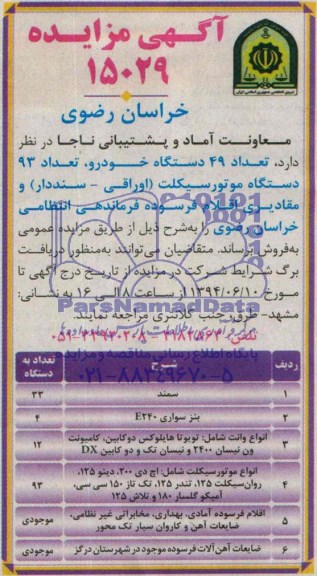 آگهی مزایده
۱۵۰۲۹
خراسان رضوی
معاونت آماد و پشتیبانی ناجا در نظر
دارد، تعداد ۴۹ دستگاه خودرو، تعداد ۹۳
دستگاه موتورسیکلت (اوراقی - سنددار) و
مقادیری اقلام فرسوده فرماندهی انتظامی
خراسان رضوی را به‌شرح ذیل از طریق مزایده عمومی
به‌فروش برساند. متقاضیان می‌توانند به‌منظور دریافت
برگ شرایط شرکت در مزایده از تاریخ درج آگهی تا
مورخ ۱۳۹۴/۰۶/۱۰ از ساعت ۸ الی ۱۶ به نشانی:
مشهد- طرق، جنب کلانتری مراجعه نمایند.
ParsNamadData
پایگاه اطلاع رسانی مناقصه و مزایده
۰۲۱-۸۸۳۴۹۶۷۰-۵
ردیف شرح تعداد به دستگاه
۱ سمند ۳۳
۲ بنز سواری E۲۴۰ ۴
۳ انواع وانت شامل: تویوتا هایلوکس دوکابین، کامیونت
ون نیسان ۲۴۰۰ و نیسان تک و دو کابین DX ۱۲
۴ انواع موتورسیکلت شامل: اچ دی ۲۰۰، دیتو ۱۲۵،
روان‌سیکلت ۱۲۵، تندر ۱۲۵، تک تاز ۱۵۰ سی سی،
آمیکو گلسار ۱۸۰ و تلاش ۱۲۵ ۹۳
۵ اقلام فرسوده آمادی، بهداری، مخابراتی غیر نظامی،
ضایعات آهن و کاروان سیار تک محور موجودی
۶ ضایعات آهن آلات فرسوده موجود در شهرستان درگز موجودی